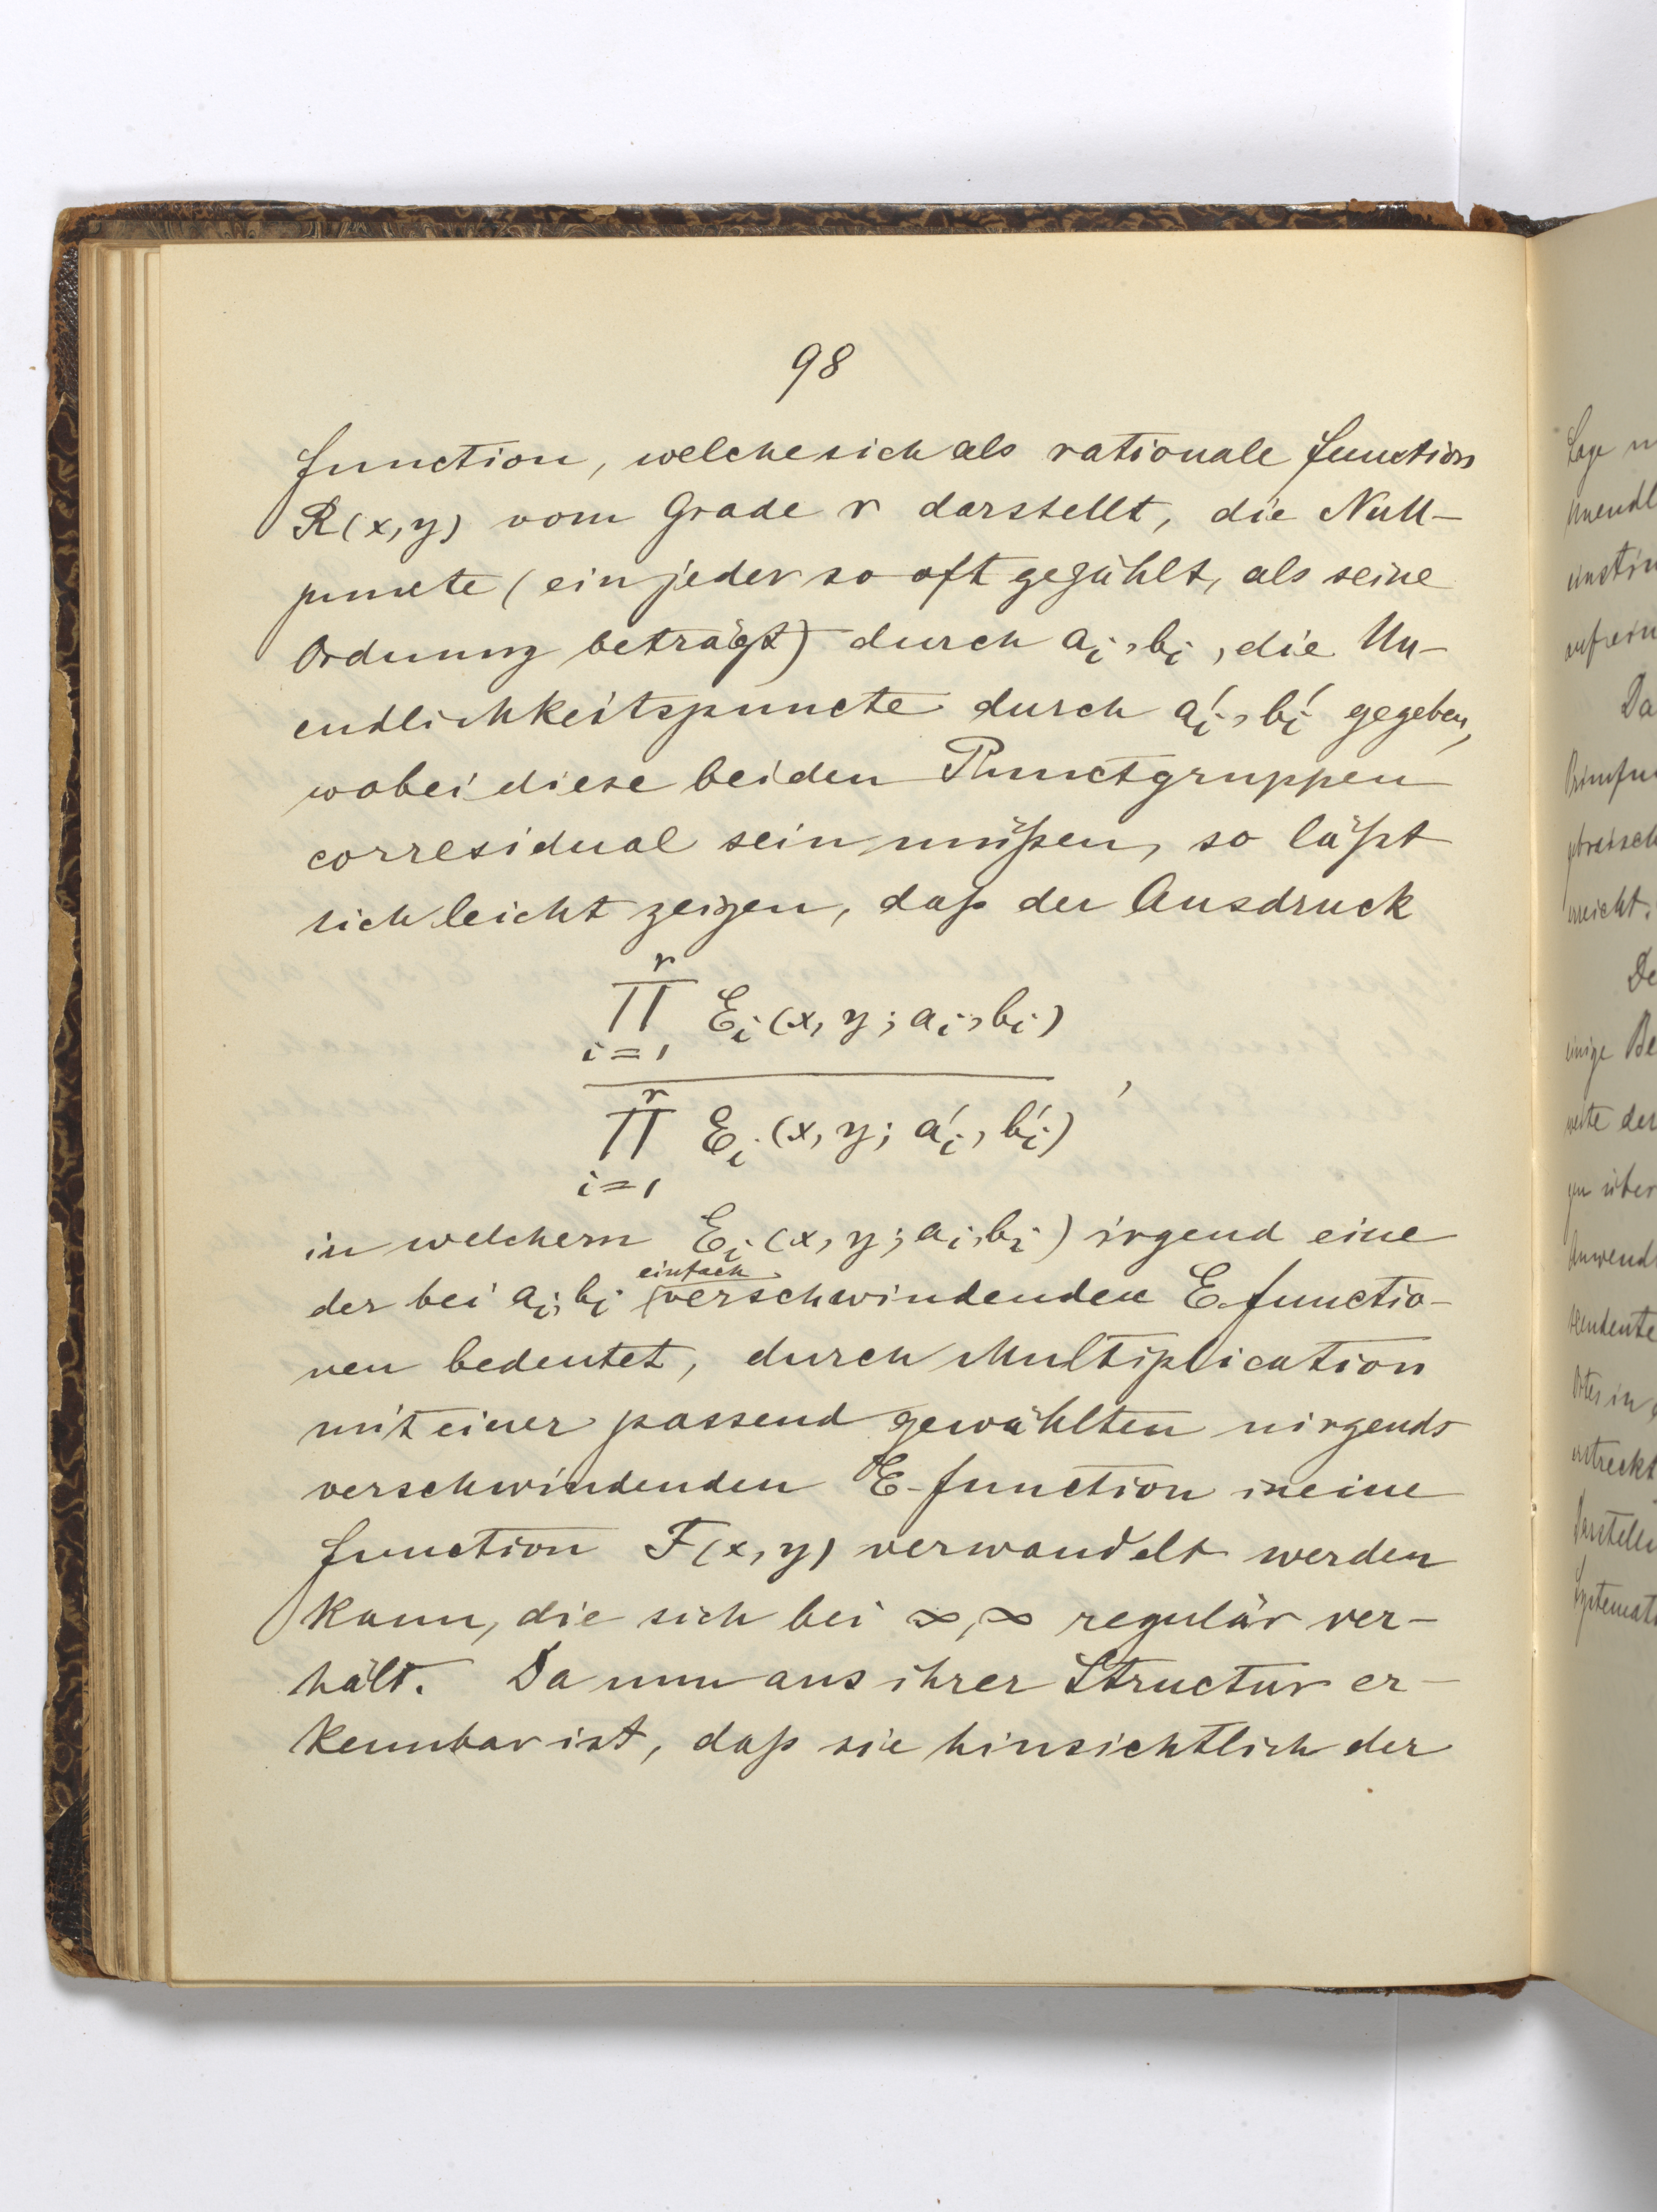 98
function, welche sich als rationale function
R(x, y) vom Grade r darstellt, die Null-
puncte (ein jeder so oft gezählt, als seine
Ordnung beträgt) durch aᵢ, bᵢ, die Un-
endlichkeitspuncte durch a′ᵢ, b′ᵢ gegeben,
wobei diese beiden Punctgruppen
corresidual sein müßen, so läßt
sich leicht zeigen, daß der Ausdruck
r
∏ Eᵢ(x, y; aᵢ, bᵢ)
i=1
,
r
∏ Eᵢ(x, y; a′ᵢ, b′ᵢ)
i=1
in welchem Eᵢ(x, y; aᵢ, bᵢ) irgend eine
der bei aᵢ, bᵢ einfach verschwindenden E functio-
nen bedeutet, durch Multiplication
mit einer passend gewählten nirgends
verschwindenden E-function in eine
function F(x, y) verwandelt werden
kann, die sich bei ∞, ∞ regulär ver-
hält. Da nun aus ihrer Structur er-
kennbar ist, daß sie hinsichtlich der
Da
De
einige Be